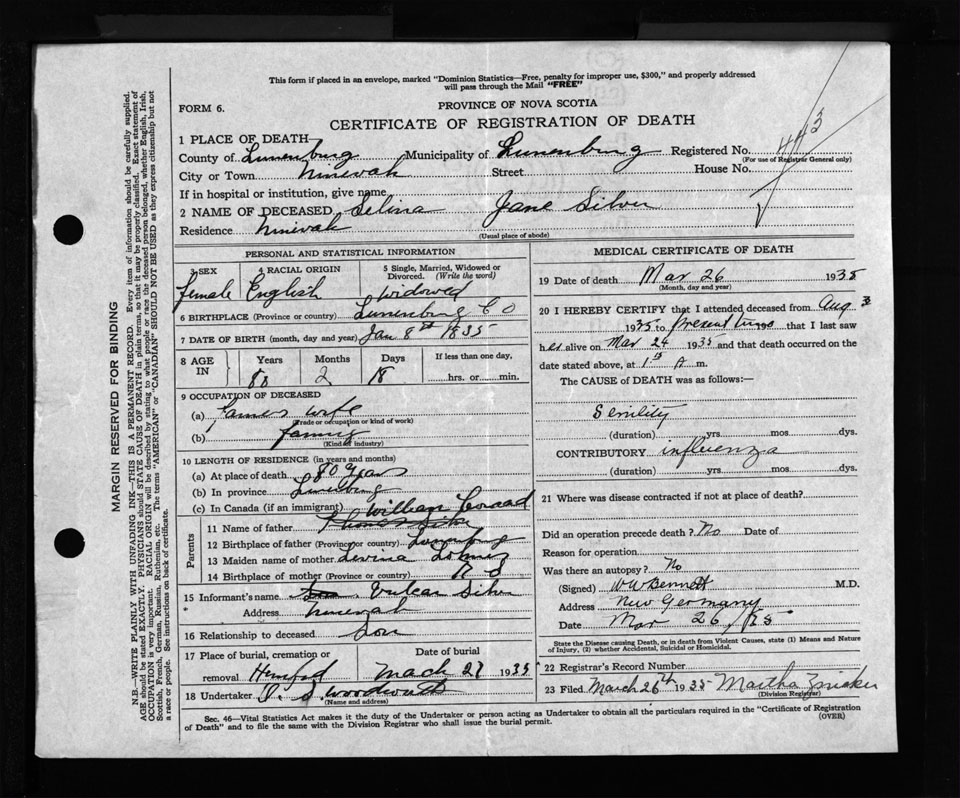 This form if placed in an envelope, marked "Dominion Statistics—Free, penalty for improper use, $300," and properly addressed
will pass through the Mail "FREE"
FORM 6.
PROVINCE OF NOVA SCOTIA
CERTIFICATE OF REGISTRATION OF DEATH
1 PLACE OF DEATH
443
County of Lunenburg Municipality of Lunenburg Registered No.
(For use of Registrar General only)
City or Town Ninevah Street House No.
If in hospital or institution, give name
2 NAME OF DECEASED Selina Jane Silver
Residence Ninevah
(Usual place of abode)
PERSONAL AND STATISTICAL INFORMATION
3 SEX 4 RACIAL ORIGIN 5 Single, Married, Widowed or
Divorced. (Write the word)
female English Widowed
6 BIRTHPLACE (Province or country) Lunenburg CO
7 DATE OF BIRTH (month, day and year) Jan 8th 1835
8 AGE IN Years Months Days If less than one day,
80 2 18 hrs. or min.
9 OCCUPATION OF DECEASED
(a) farmers wife
(Trade or occupation or kind of work)
(b) farming
(Kind of industry)
10 LENGTH OF RESIDENCE (in years and months)
(a) At place of death 80 years
(b) In province Lunenburg
(c) In Canada (if an immigrant)
William Conrad
Parents
11 Name of father Thomas Silver
12 Birthplace of father (Province or country) Lunenburg
13 Maiden name of mother Levina
14 Birthplace of mother (Province or country) N S
15 Informant's name Vulcan Silver
Address Ninevah
16 Relationship to deceased Son
17 Place of burial, cremation or Date of burial
removal Hemford March 27 1935
18 Undertaker
(Name and address)
MEDICAL CERTIFICATE OF DEATH
19 Date of death Mar 26 1935
(Month, day and year)
20 I HEREBY CERTIFY that I attended deceased from Aug 3
1935 to Present time 190 that I last saw
her alive on Mar 24 1935 and that death occurred on the
date stated above, at 1 A m.
The CAUSE of DEATH was as follows:—
Senility
(duration) yrs. mos. dys.
CONTRIBUTORY influenza
(duration) yrs. mos. dys.
21 Where was disease contracted if not at place of death?
Did an operation precede death? No Date of
Reason for operation
Was there an autopsy? No
(Signed) W W Bennett M.D.
Address New Germany
Date Mar 26/35
State the Disease causing Death, or in death from Violent Causes, state (1) Means and Nature
of Injury, (2) whether Accidental, Suicidal or Homicidal.
22 Registrar's Record Number
23 Filed March 26th 1935 Martha Zwicker
(Division Registrar)
Sec. 46—Vital Statistics Act makes it the duty of the Undertaker or person acting as Undertaker to obtain all the particulars required in the "Certificate of Registration
of Death" and to file the same with the Division Registrar who shall issue the burial permit.
(OVER)
MARGIN RESERVED FOR BINDING
N.B.—WRITE PLAINLY WITH UNFADING INK—THIS IS A PERMANENT RECORD. Every item of information should be carefully supplied.
AGE should be stated EXACTLY. PHYSICIANS should STATE CAUSE OF DEATH in plain terms, so that it may be properly classified. Exact statement of
OCCUPATION is very important. RACIAL ORIGIN will be described by stating to what people or race the deceased person belonged, whether English, Irish,
Scottish, French, German, Russian, Ruthenian, etc. The terms "AMERICAN" or "CANADIAN" SHOULD NOT BE USED as they express citizenship but not
a race or people. See instructions on back of certificate.